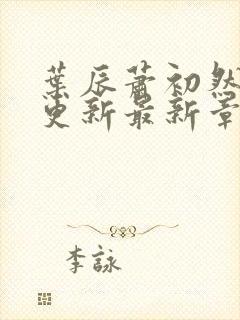 葉辰蕭初然
更新最新章
李詠